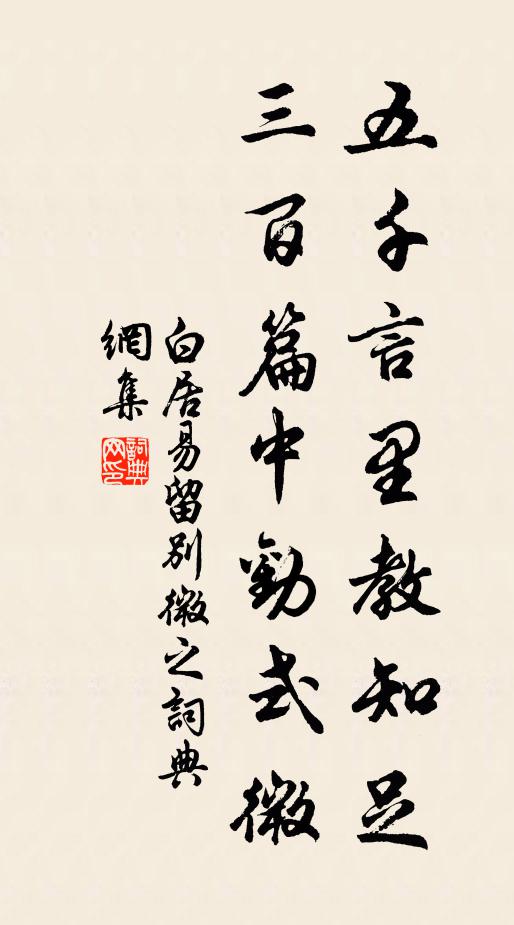 五千言里教知足
三百篇中勸式微
白居易留別微之詞典
網集
詞典網印